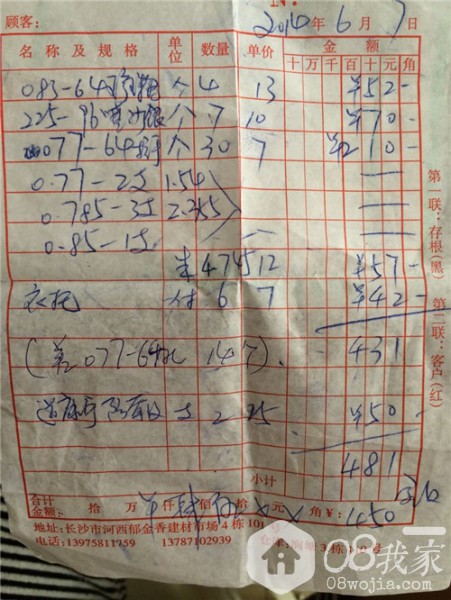 顾客: 2014年6月7日
名称及规格 单位 数量 单价 金额
十万千百十元角
083-64 个 4 13 ¥52-
225-96 个 7 10 ¥70-
077-64 个 30 7 ¥210-
0.77-2 1.54 —
0.785-3 2.355 —
0.85-1 —
米 4.745 12 ¥57-
衣托 一付 6 7 ¥42-
(差077-64 14个). 431
2 25 ¥50
小计 481
合计金额: 拾 万 仟 肆佰 元 角 ¥: 450
地址:长沙市河西郁金香建材市场4栋101
电话:13975811759 13787102939
第一联:存根(黑) 第二联:客户(红)
08我家
08wojia.com